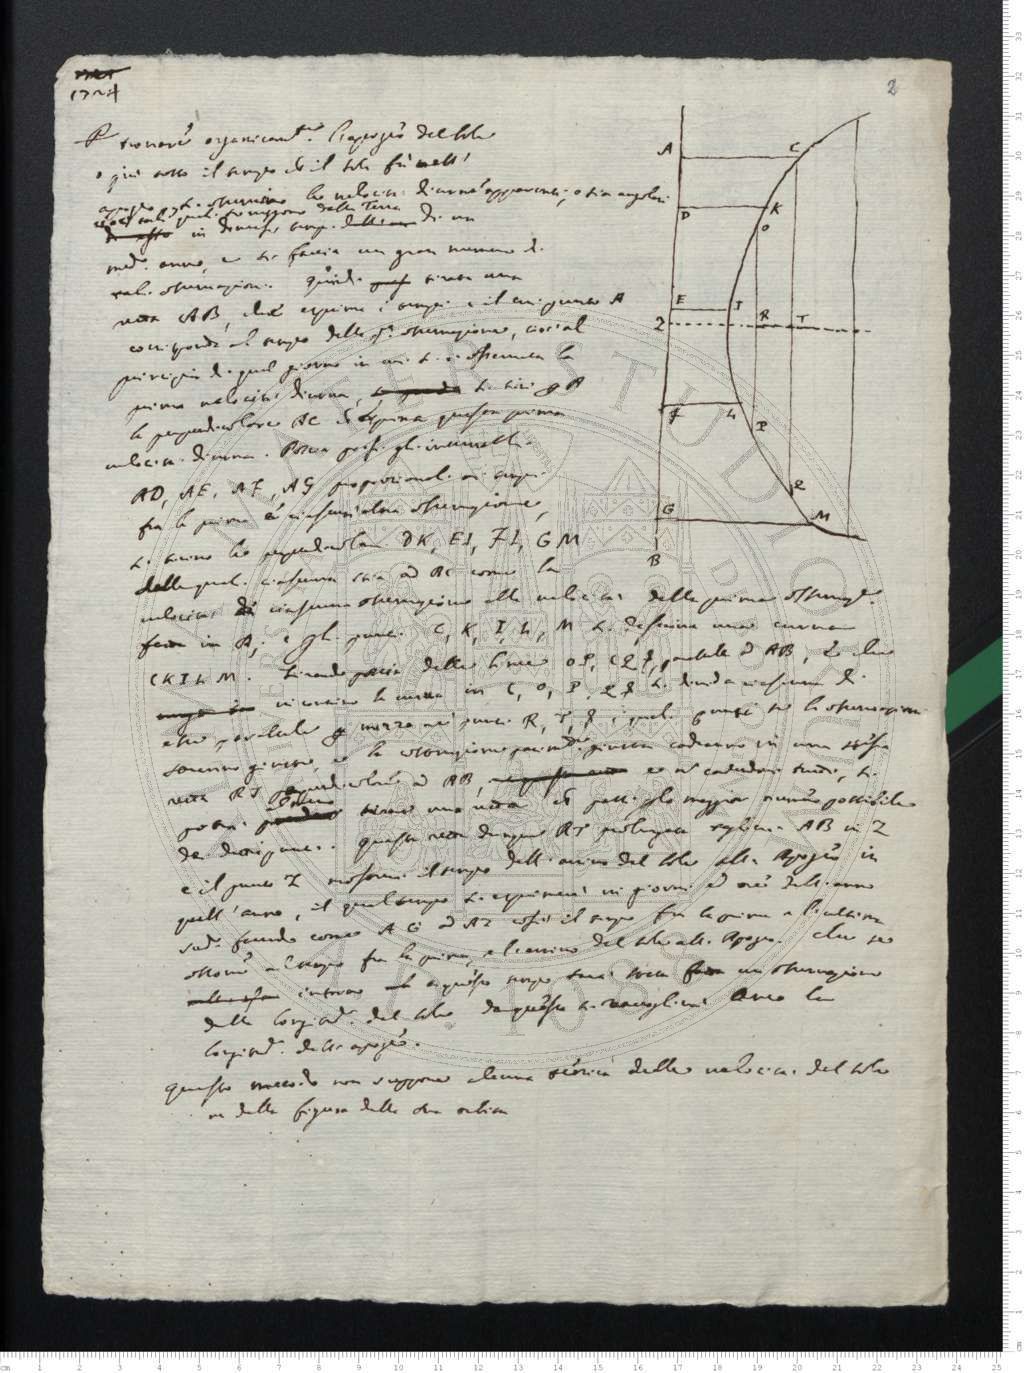 1724
2
Per trovare organicamte. l'apogeo del Sole
o più tosto il tempo che il Sole fù nell'
apogeo si osservino le velocità diurne apparenti, o sia angolari
in diversi tempi di un
medo. anno, e si faccia un gran numero di
tali osservazioni. Quindi tirata una
retta AB, che esprima i tempi e il cui punto A
corrisponda al tempo della pa. osservazione, cioè al
principio di quel giorno in cui si è osservata la
prima velocità diurna, si tiri
la perpendicolare AC che esprima questa prima
velocità diurna. Poscia presi gli intervalli
AD, AE, AF, AG proporzionali ai tempi
fra la prima e ciascun'altra osservazione,
si tirino le perpendicolari DK, EI, FL, GM
delle quali ciascuna stia ad AC come la
velocità di ciascuna osservazione alla velocità della prima osservaze.
in A; e pei punti C, K, I, L, M si descriva una curva
CKILM. Tirando poscia delle linee OP, CQ parallele ad AB, le quali
incontrino la curva in C, O, P, Q si divida ciascuna di
esse parallele per mezzo nei punti R, T, i quali punti se le osservazioni
saranno giuste, e la costruzione parimente giusta cadranno in una stessa
retta RT perpendicolare ad AB, e se non cadendovi tutti, si
potrà tirare una retta che passi per lo maggior numero possibile
di detti punti. Questa retta dunque RT prolungata tagli la AB in Z
e il punto Z mostrerà il tempo dell'arrivo del Sole all'Apogeo in
quell'anno, il qual tempo si esprimerà in giorni ed ore dell'anno
facendo come AG ad AZ così il tempo fra la prima e l'ultima
osservaze. al tempo fra la prima, e l'arrivo del Sole all'Apogeo. Che se
intorno a questo tempo sarà stata fatta un'osservazione
della longitude. del Sole da questa si raccoglierà anco la
longitude. dell'apogeo.
Questo metodo non suppone alcuna teorica delle velocità del Sole
nè della figura della sua orbita
A C
D K
O
E I
Z R T
F L P
Q
G M
B